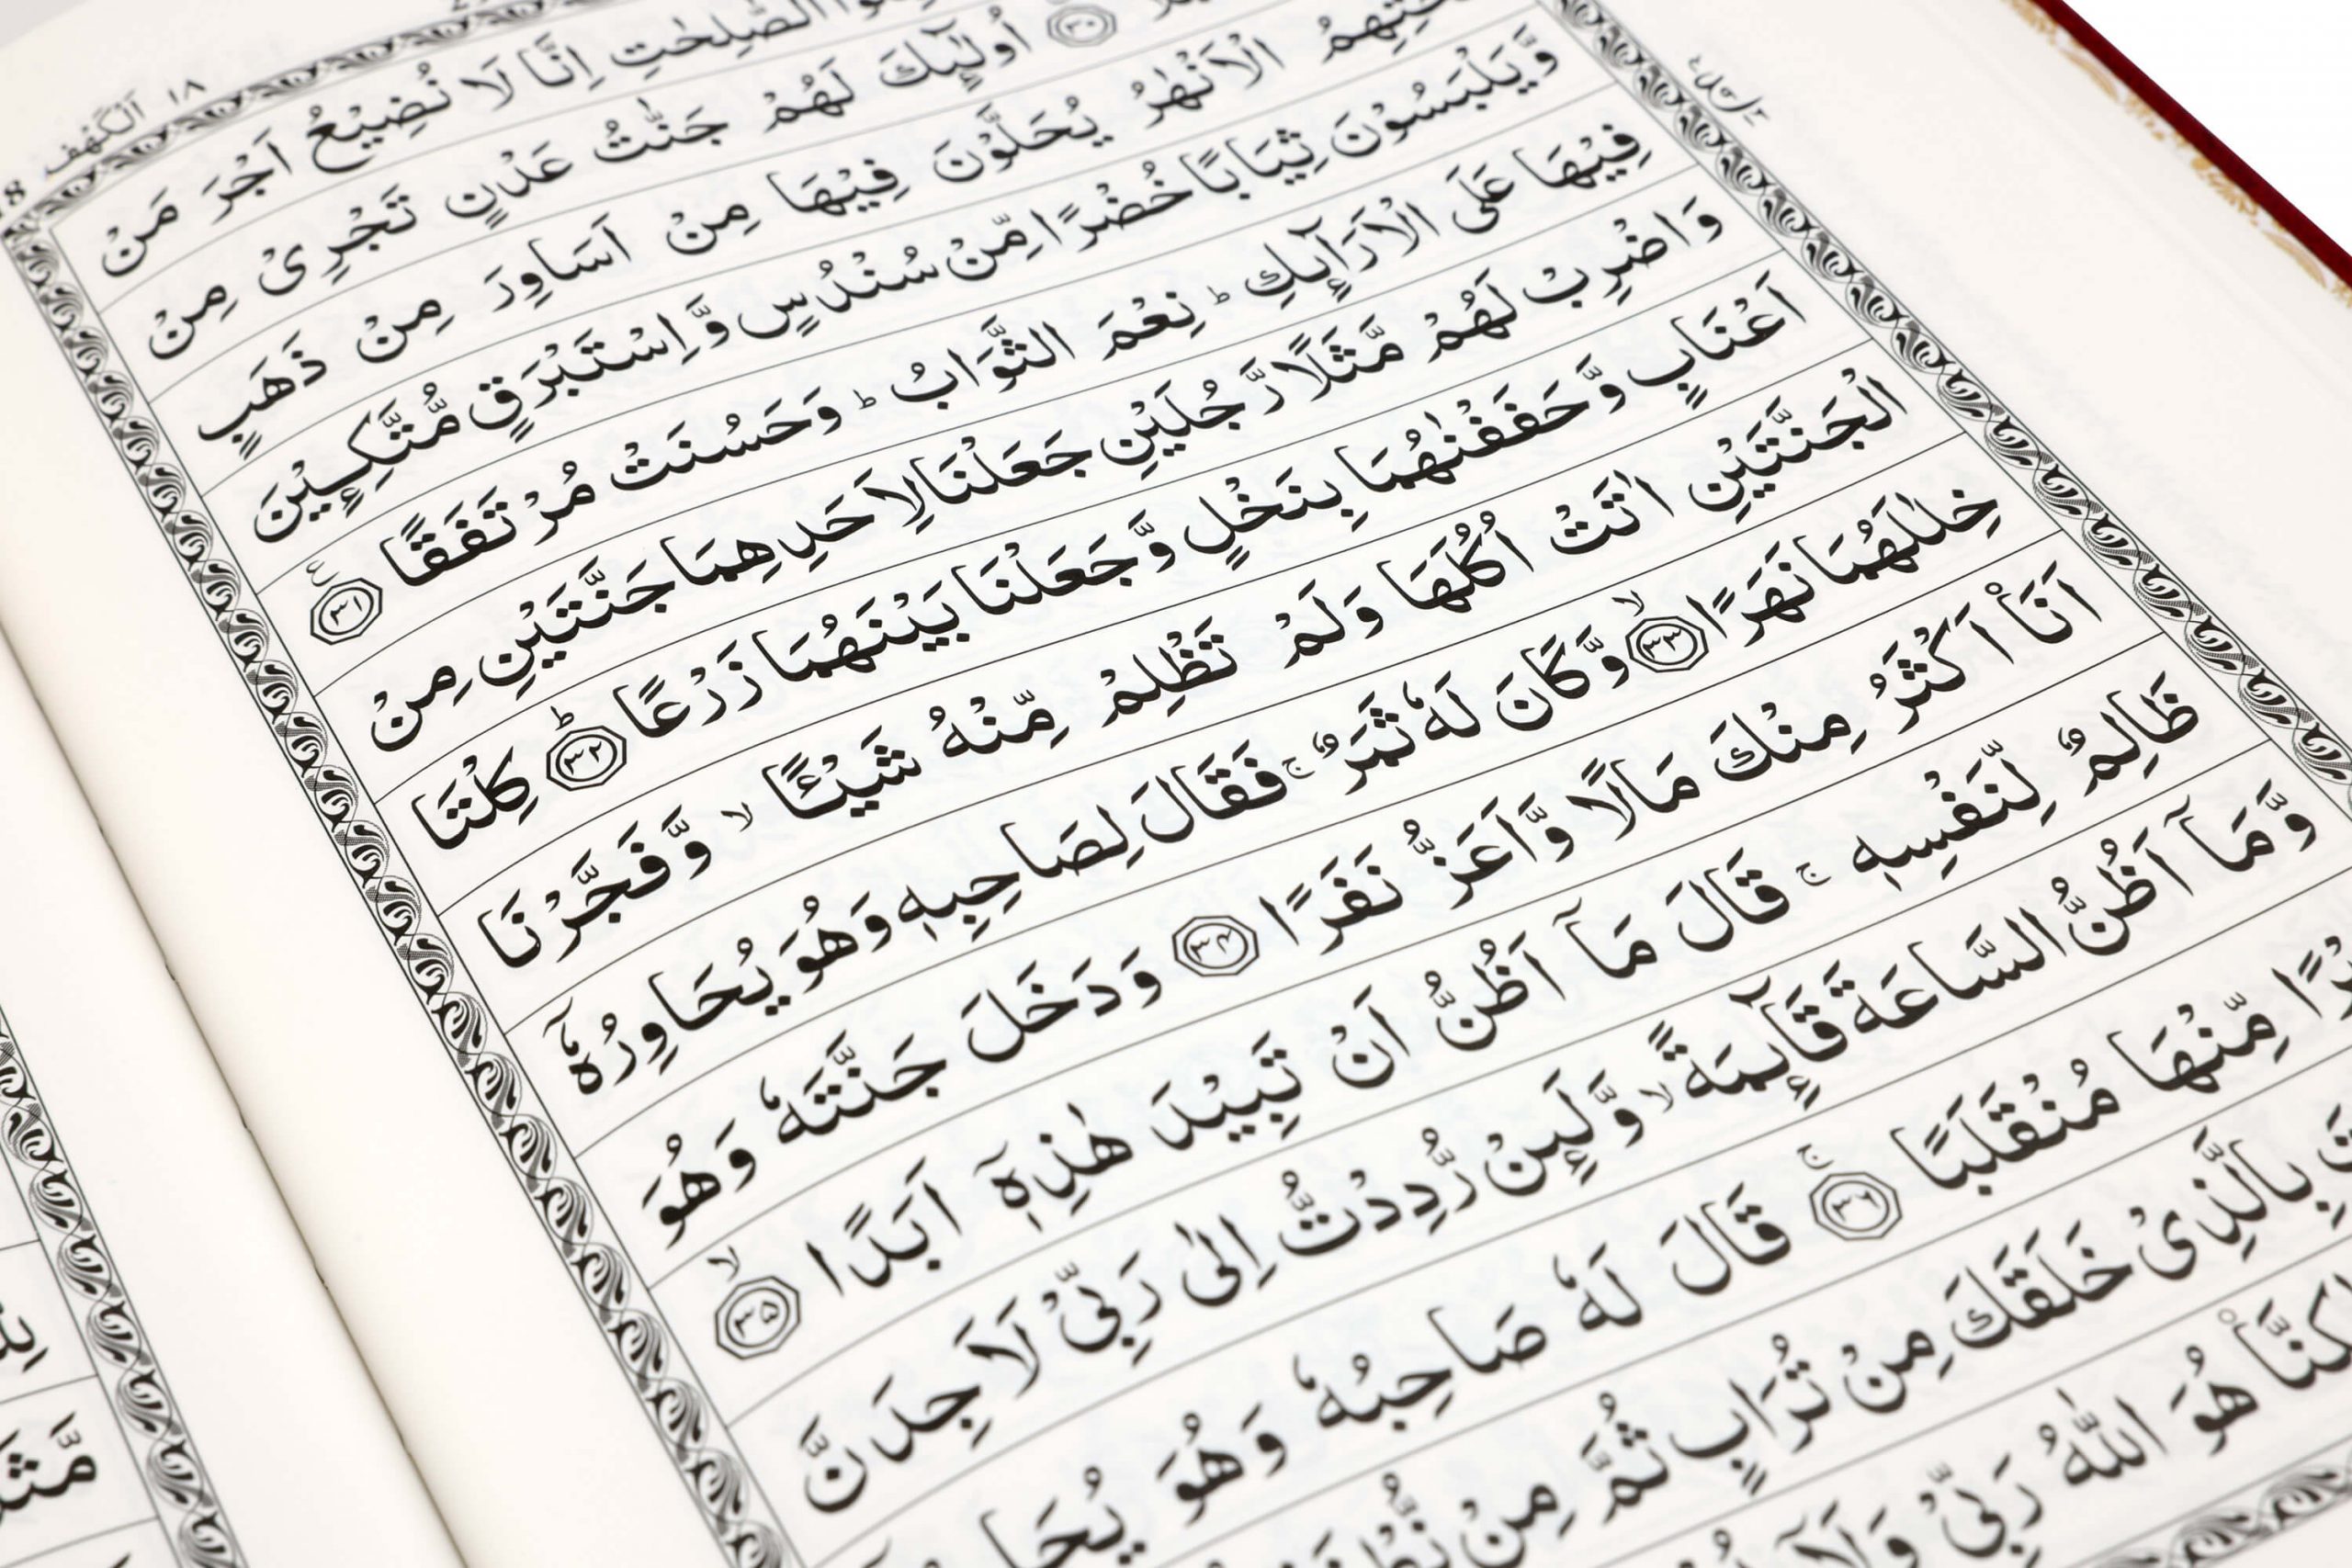 الكهف ١٨
الصّٰلِحٰتِ اِنَّا لَا نُضِيْعُ اَجْرَ مَنْ
۳۰ اُولٰٓىِٕكَ لَهُمْ جَنّٰتُ عَدْنٍ تَجْرِىْ مِنْ
الْاَنْهٰرُ يُحَلَّوْنَ فِيْهَا مِنْ اَسَاوِرَ مِنْ ذَهَبٍ
وَّيَلْبَسُوْنَ ثِيَابًا خُضْرًا مِّنْ سُنْدُسٍ وَّاِسْتَبْرَقٍ مُّتَّكِـِٕيْنَ
فِيْهَا عَلَى الْاَرَآىِٕكِ ؕ نِعْمَ الثَّوَابُ ؕ وَحَسُنَتْ مُرْتَفَقًا ۙ ۳۱
وَاضْرِبْ لَهُمْ مَّثَلًا رَّجُلَيْنِ جَعَلْنَا لِاَحَدِهِمَا جَنَّتَيْنِ مِنْ
اَعْنَابٍ وَّحَفَفْنٰهُمَا بِنَخْلٍ وَّجَعَلْنَا بَيْنَهُمَا زَرْعًا ؕ ۳۲ كِلْتَا
الْجَنَّتَيْنِ اٰتَتْ اُكُلَهَا وَلَمْ تَظْلِمْ مِّنْهُ شَيْـًٔا ۙ وَّفَجَّرْنَا
خِلٰلَهُمَا نَهَرًا ۙ ۳۳ وَّكَانَ لَهٗ ثَمَرٌ ۚ فَقَالَ لِصَاحِبِهٖ وَهُوَ يُحَاوِرُهٗۤ
اَنَا۠ اَكْثَرُ مِنْكَ مَالًا وَّاَعَزُّ نَفَرًا ۳۴ وَدَخَلَ جَنَّتَهٗ وَهُوَ
ظَالِمٌ لِّنَفْسِهٖ ۚ قَالَ مَاۤ اَظُنُّ اَنْ تَبِيْدَ هٰذِهٖۤ اَبَدًا ۙ ۳۵
وَّمَاۤ اَظُنُّ السَّاعَةَ قَآىِٕمَةً ۙ وَّلَىِٕنْ رُّدِدْتُّ اِلٰى رَبِّىْ لَاَجِدَنَّ
مِّنْهَا مُنْقَلَبًا ۚ ۳۶ قَالَ لَهٗ صَاحِبُهٗ وَهُوَ
بِالَّذِىْ خَلَقَكَ مِنْ تُرَابٍ ثُمَّ مِنْ
هُوَ اللّٰهُ رَبِّىْ